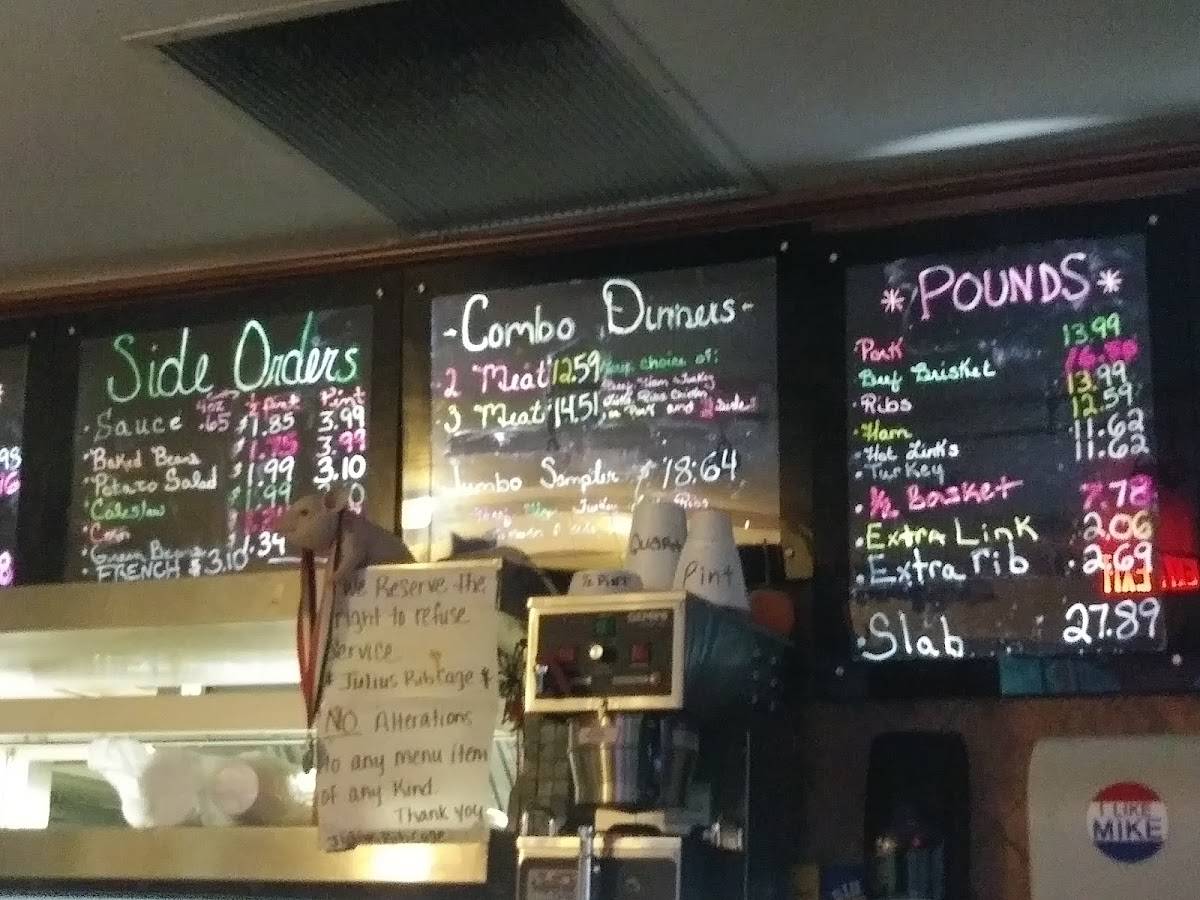 98
Side Orders
4oz ½ Pint Pint
Sauce .65 $1.85 3.99
Baked Beans $1.75 3.99
Potato Salad $1.99 3.10
Coleslaw $1.99
Corn
Green Beans 1.34
FRENCH $3.10
-Combo Dinners-
2 Meat 12.59 Your choice of:
Beef Ham Turkey
3 Meat 14.51
or Pork and Side
Jumbo Sampler $18.64
Turkey Ribs
* POUNDS *
Pork 13.99
Beef Brisket
Ribs 13.99
Ham 12.59
Hot Links 11.62
Turkey 11.62
½ Basket 7.78
Extra Link 2.06
Extra rib 2.69
Slab 27.89
Quart
½ Pint
Pint
We Reserve the
right to refuse
Service
Julius Ribcage
NO Alterations
to any menu item
of any Kind.
Thank you
Ribcage
I LIKE
MIKE